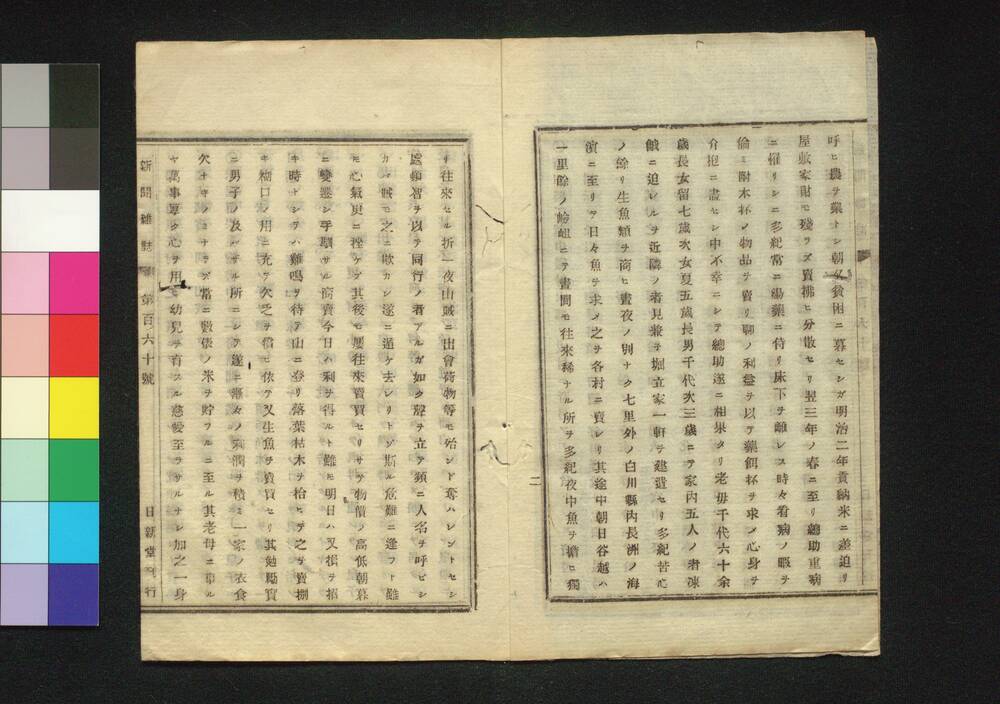 呼ヒ農ヲ業トシ朝夕貧困ニ暮セシガ明治二年貢納米ニ差迫リ
屋敷家財モ殘ラズ賣拂ヒ分散セリ翌三年ノ春ニ至リ總助重病
ニ罹リシニ多紀常ニ湯藥ニ侍リ床下ヲ離レス時々看病ノ暇ヲ
偷ミ酎木杯ノ物品ヲ賣リ聊ノ利益ヲ以テ藥餌杯ヲ求メ心身ヲ
介抱ニ盡セシ中不幸ニシテ總助遂ニ相果タリ老母千代六十余
歳長女留七歳次女夏五歳長男千代次三歳ニテ家内五人ノ者凍
餓ニ迫レルヲ近隣ノ者見兼ヲ堀立家一軒ヲ建遣セリ多紀苦心
ノ餘リ生魚類ヲ商ヒ晝夜ノ別ナク七里外ノ白川縣内長洲ノ海
濱ニ至リテ日々魚ヲ求メ之ヲ各村ニ賣レリ其途中朝日谷越ハ
一里餘ノ嶮岨ニテ晝間モ往來稀ナル所ヲ多紀夜中魚ヲ擔ヒ獨
二
リ往來セル折一夜山賊ニ出會荷物等モ殆ンド奪ハレントセシ
處頓智ヲ以テ同行ノ者アルガ如ク聲ヲ立テ頻ニ人名ヲ呼ビシ
カバ賊モ之ニ欺カレ遂ニ遁ケ去レリトゾ斯ル危難ニ逢フト雖
モ心氣更ニ挫ケズ其後モ屢往來賣買セリサテ物價ノ高低朝暮
ニ變遷シ手馴サル商賣今日ハ利ヲ得ルト雖モ明日ハ又損ヲ招
キ時トシテハ雞鳴ヲ待テ山ニ登リ落葉枯木ヲ拾ヒテ之ヲ賣捌
キ糊口ノ用ニ充テ欠乏ヲ償モ依テ又生魚ヲ賣買セリ其勉勵實
ニ男子ノ及バザル所ニシテ遂ニ漸々ノ利潤ヲ積ミ一家ノ衣食
欠ナキノミナラズ常ニ數俵ノ米ヲ貯フルニ至ル其老母ニ事ル
ヤ萬事專ラ心ヲ用モ幼兒ヲ育スル慈愛至ラサルナシ加之一身
新聞雜誌 第百六十號 日新堂 行